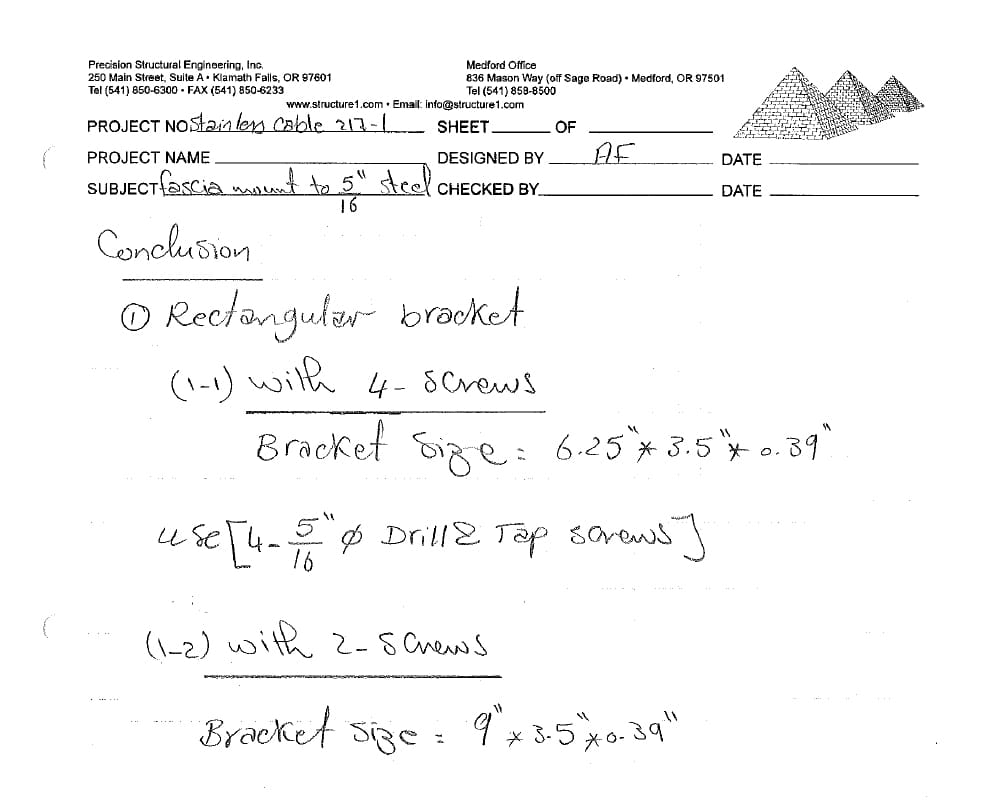 Precision Structural Engineering, Inc.
250 Main Street, Suite A • Klamath Falls, OR 97601
Tel (541) 850-6300 • FAX (541) 850-6233
Medford Office
836 Mason Way (off Sage Road) • Medford, OR 97501
Tel (541) 858-8500
www.structure1.com • Email: info@structure1.com
PROJECT NO Stainless Cable 217-1 SHEET OF
PROJECT NAME DESIGNED BY AF DATE
SUBJECT fascia mount to 5/16" steel CHECKED BY DATE
Conclusion
① Rectangular bracket
(1-1) with 4- screws
Bracket Size: 6.25" * 3.5" * 0.39"
use [4- 5/16" ø Drill & Tap screws]
(1-2) with 2- screws
Bracket size = 9" * 3.5" * 0.39"